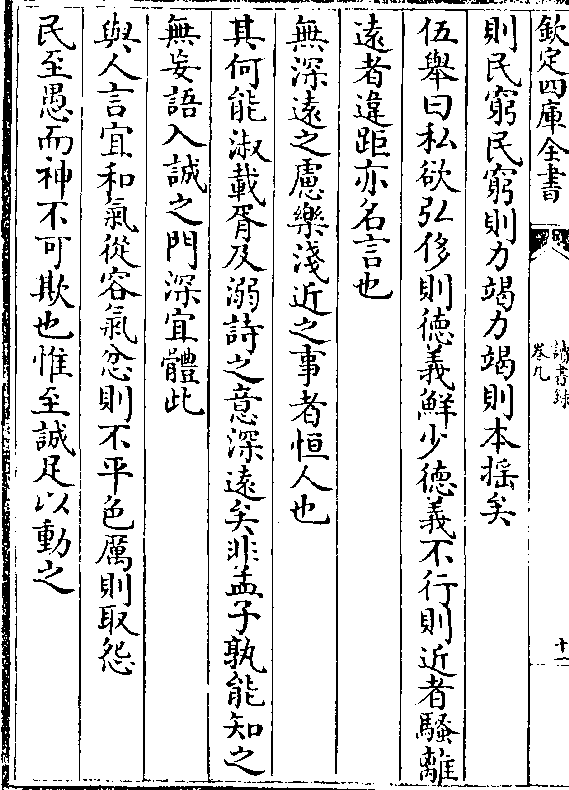 欽定四庫全書
讀書録
卷九
十一
則民窮民窮則力竭力竭則本揺矣
伍舉曰私欲弘侈則徳義鮮少徳義不行則近者騷離
逺者違距亦名言也
無深逺之慮樂淺近之事者恒人也
其何能淑載胥及溺詩之意深遠矣非孟子孰能知之
無妄語入誠之門深宜體此
與人言宜和氣從容氣忿則不平色厲則取怨
民至愚而神不可欺也惟至誠足以動之